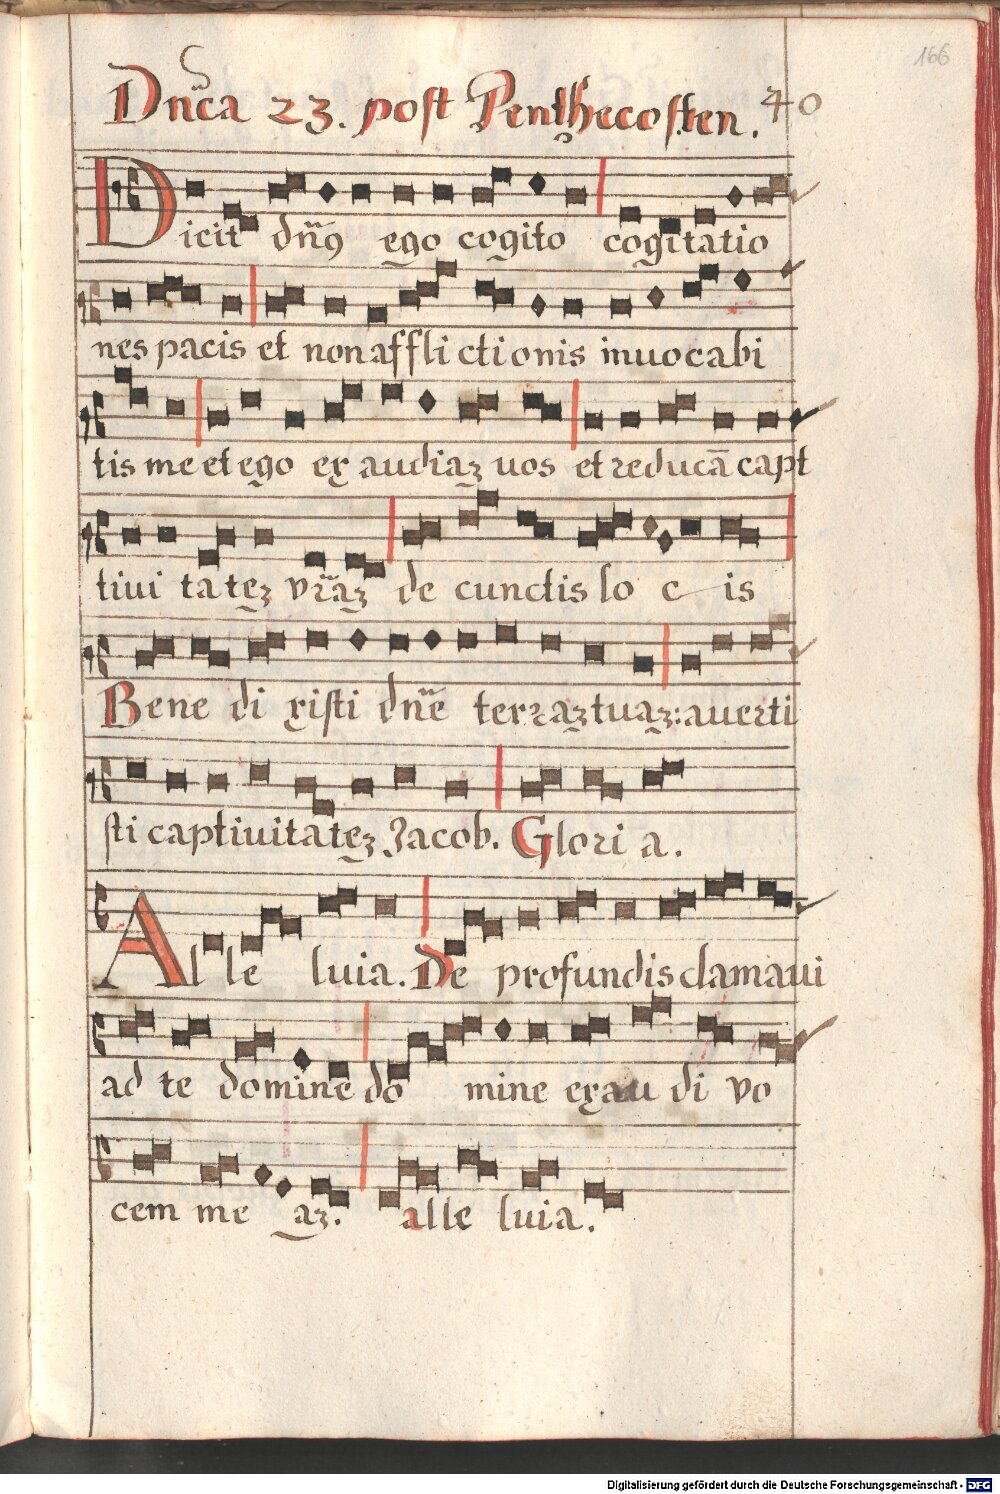 166
Dn̄ca 23. post Penthecosten. 40
Dicit dn̄s ego cogito cogitatio
nes pacis et non affli cti onis inuocabi
tis me et ego exaudiaz uos et reducā capt
tiui ta tez vr̄az de cunctis lo c is
Bene di xisti dn̄e terraz tuaz: auerti
sti captiuitatez Jacob. Glori a.
Al le luia. De profundis clamaui
ad te domine do mine exau di vo
cem me az. alle luia.
Digitalisierung gefördert durch die Deutsche Forschungsgemeinschaft - DFG